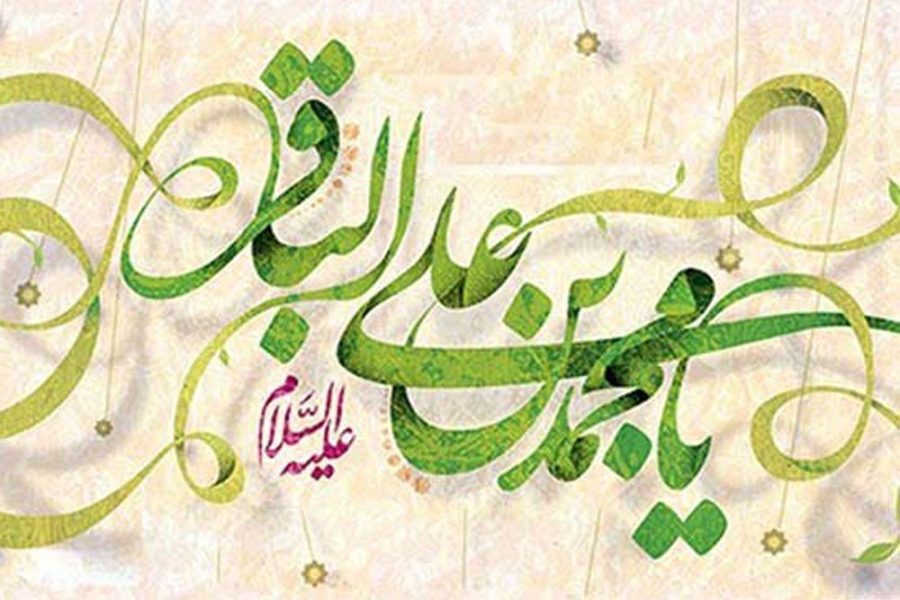 یا محمد بن علی الباقر
علیه السّلام